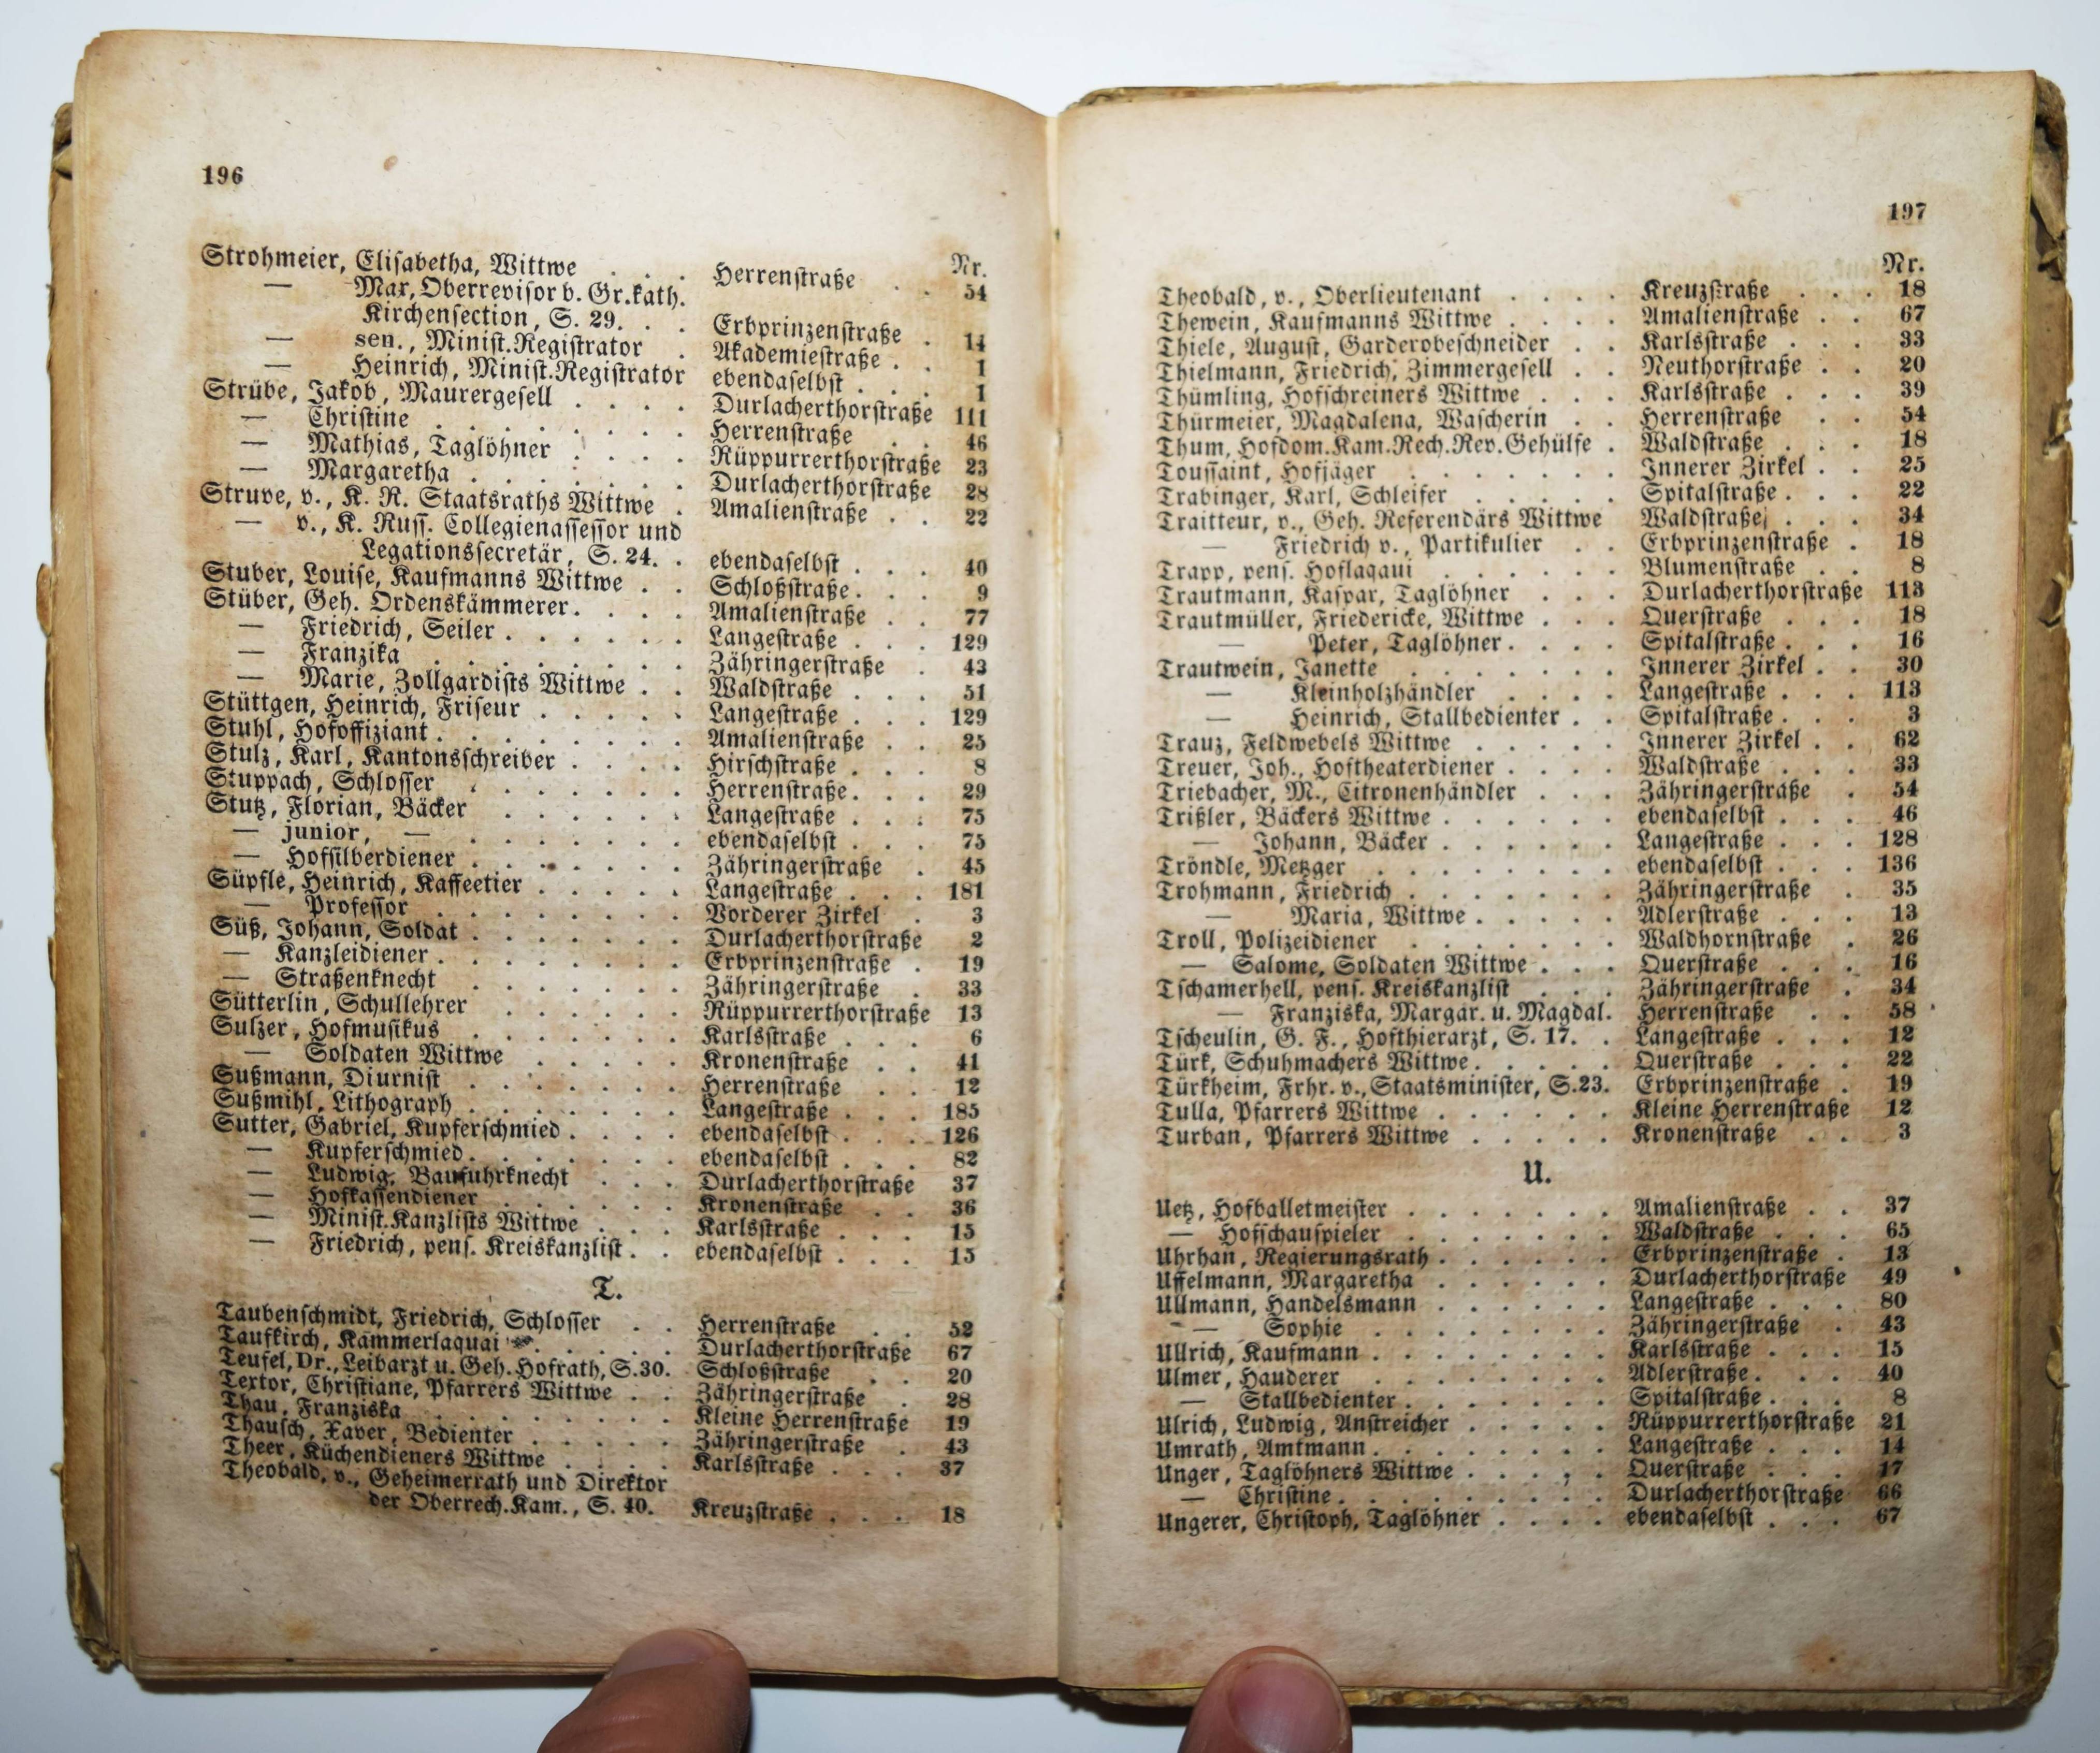 196
Nr.
Strohmeier, Elisabetha, Wittwe . . . Herrenstraße . . 54
— Max, Oberrevisor b. Gr. kath.
Kirchensection, S. 29. . . Erbprinzenstraße . 14
— sen., Minist.Registrator . Akademiestraße . . 1
— Heinrich, Minist.Registrator ebendaselbst . . . 1
Strübe, Jakob, Maurergesell . . . . Durlacherthorstraße 111
— Christine . . . . . . . Herrenstraße . . 46
— Mathias, Taglöhner . . . . Rüppurrerthorstraße 23
— Margaretha . . . . . . Durlacherthorstraße 28
Struve, v., K. R. Staatsraths Wittwe . Amalienstraße . . 22
— v., K. Russ. Collegienassessor und
Legationssecretär, S. 24. . ebendaselbst . . . 40
Stuber, Louise, Kaufmanns Wittwe . . Schloßstraße . . . 9
Stüber, Geh. Ordenskämmerer. . . . Amalienstraße . . 77
— Friedrich, Seiler . . . . . . Langestraße . . . 129
— Franzika . . . . . . . Zähringerstraße . 43
— Marie, Zollgardists Wittwe . . Waldstraße . . . 51
Stüttgen, Heinrich, Friseur . . . . . Langestraße . . . 129
Stuhl, Hofoffiziant . . . . . . . Amalienstraße . . 25
Stulz, Karl, Kantonsschreiber . . . . Hirschstraße . . . 8
Stuppach, Schlosser . . . . . . Herrenstraße. . . 29
Stutz, Florian, Bäcker . . . . . Langestraße . . . 75
— junior, — . . . . . . ebendaselbst . . . 75
— Hofsilberdiener . . . . . . Zähringerstraße . 45
Süpfle, Heinrich, Kaffeetier . . . . . Langestraße . . . 181
— Professor . . . . . . . Vorderer Zirkel . 3
Süß, Johann, Soldat . . . . . . Durlacherthorstraße 2
— Kanzleidiener . . . . . . . Erbprinzenstraße . 19
— Straßenknecht . . . . . . Zähringerstraße . 33
Sütterlin, Schullehrer . . . . . Rüppurrerthorstraße 13
Sulzer, Hofmusikus . . . . . . Karlsstraße . . . 6
— Soldaten Wittwe . . . . . Kronenstraße . . 41
Sußmann, Diurnist . . . . . . Herrenstraße . . 12
Sußmihl, Lithograph . . . . . . Langestraße . . . 185
Sutter, Gabriel, Kupferschmied . . . . ebendaselbst . . . 126
— Kupferschmied. . . . . . . ebendaselbst . . . 82
— Ludwig, Baufuhrknecht . . . Durlacherthorstraße 37
— Hofkassendiener . . . . . Kronenstraße . . 36
— Minist.Kanzlists Wittwe . . . Karlsstraße . . . 15
— Friedrich, pens. Kreiskanzlist . . ebendaselbst . . . 15
T.
Taubenschmidt, Friedrich, Schlosser . . Herrenstraße . . 52
Taufkirch, Kammerlaquai . . . . . Durlacherthorstraße 67
Teufel, Dr., Leibarzt u. Geh. Hofrath, S.30. Schloßstraße . . 20
Textor, Christiane, Pfarrers Wittwe . . Zähringerstraße . 28
Thau, Franziska . . . . . . . Kleine Herrenstraße 19
Thausch, Xaver, Bedienter . . . . . Zähringerstraße . 43
Theer, Küchendieners Wittwe . . . . Karlsstraße . . . 37
Theobald, v., Geheimerrath und Direktor
der Oberrech.Kam., S. 40. Kreuzstraße . . . 18
197
Nr.
Theobald, v., Oberlieutenant . . . . Kreuzstraße . . . 18
Thewein, Kaufmanns Wittwe . . . . Amalienstraße . . 67
Thiele, August, Garderobeschneider . . Karlsstraße . . . 33
Thielmann, Friedrich, Zimmergesell . . Neuthorstraße . . 20
Thümling, Hofschreiners Wittwe . . . Karlsstraße . . . 39
Thürmeier, Magdalena, Wascherin . . Herrenstraße . . 54
Thum, Hofdom.Kam.Rech.Rev.Gehülfe . Waldstraße . . . 18
Toussaint, Hofjäger . . . . . . Innerer Zirkel . . 25
Trabinger, Karl, Schleifer . . . . . Spitalstraße . . . 22
Traitteur, v., Geh. Referendärs Wittwe Waldstraße . . . 34
— Friedrich v., Partikulier . . Erbprinzenstraße . 18
Trapp, pens. Hoflaqaui . . . . . . Blumenstraße . . 8
Trautmann, Kaspar, Taglöhner . . . Durlacherthorstraße 113
Trautmüller, Friedericke, Wittwe . . . Querstraße . . . 18
— Peter, Taglöhner . . . . Spitalstraße . . . 16
Trautwein, Janette . . . . . . Innerer Zirkel . . 30
— Kleinholzhändler . . . . Langestraße . . . 113
— Heinrich, Stallbedienter . . Spitalstraße . . . 3
Trauz, Feldwebels Wittwe . . . . . Innerer Zirkel . . 62
Treuer, Joh., Hoftheaterdiener . . . . Waldstraße . . . 33
Triebacher, M., Citronenhändler . . . Zähringerstraße . 54
Trißler, Bäckers Wittwe . . . . . . ebendaselbst . . . 46
— Johann, Bäcker . . . . . . Langestraße . . . 128
Tröndle, Metzger . . . . . . . ebendaselbst . . . 136
Trohmann, Friedrich . . . . . . . Zähringerstraße . 35
— Maria, Wittwe . . . . . Adlerstraße . . . 13
Troll, Polizeidiener . . . . . . Waldhornstraße . 26
— Salome, Soldaten Wittwe . . . Querstraße . . . 16
Tschamerhell, pens. Kreiskanzlist . . . Zähringerstraße . 34
— Franziska, Margar. u. Magdal. Herrenstraße . . 58
Tscheulin, G. F., Hofthierarzt, S. 17. . Langestraße . . . 12
Türk, Schuhmachers Wittwe . . . . . Querstraße . . . 22
Türkheim, Frhr. v., Staatsminister, S.23. Erbprinzenstraße . 19
Tulla, Pfarrers Wittwe . . . . . . Kleine Herrenstraße 12
Turban, Pfarrers Wittwe . . . . . Kronenstraße . . 3
U.
Uetz, Hofballetmeister . . . . . . . Amalienstraße . . 37
— Hofschauspieler . . . . . . Waldstraße . . . 65
Uhrhan, Regierungsrath . . . . . . Erbprinzenstraße . 13
Uffelmann, Margaretha . . . . . . Durlacherthorstraße 49
Ullmann, Handelsmann . . . . . . Langestraße . . . 80
— Sophie . . . . . . . . Zähringerstraße . 43
Ullrich, Kaufmann . . . . . . . . Karlsstraße . . . 15
Ulmer, Hauderer . . . . . . . Adlerstraße . . . 40
— Stallbedienter . . . . . . . Spitalstraße . . . 8
Ulrich, Ludwig, Anstreicher . . . . . Rüppurrerthorstraße 21
Umrath, Amtmann . . . . . . . . Langestraße . . . 14
Unger, Taglöhners Wittwe . . . . . Querstraße . . . 17
— Christine . . . . . . . . Durlacherthorstraße 66
Ungerer, Christoph, Taglöhner . . . . ebendaselbst . . . 67